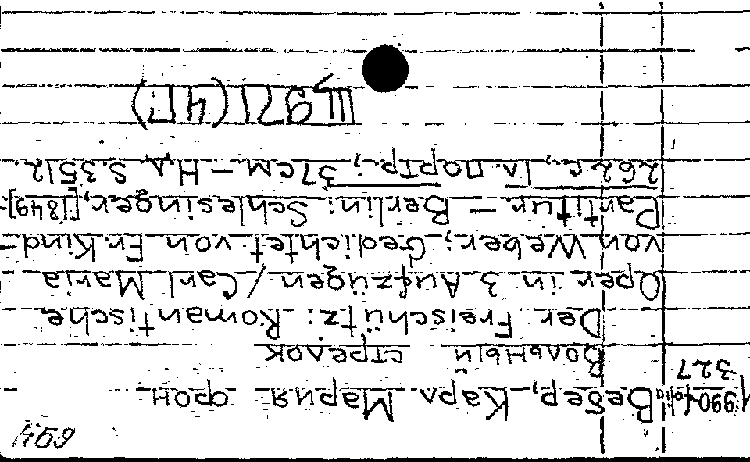 1990 folio Вебер, Карл Мария фон
327
Вольный стрелок
Der Freischütz: Romantische
Oper in 3 Aufzügen / Carl Maria
von Weber; Gedichtet von Fr. Kind. -
Partitur. - Berlin: Schlesinger, [1849]. -
262 с., 1 л. портр.; 37 см. - Н.д. S.3512
Щ971(4Г:)